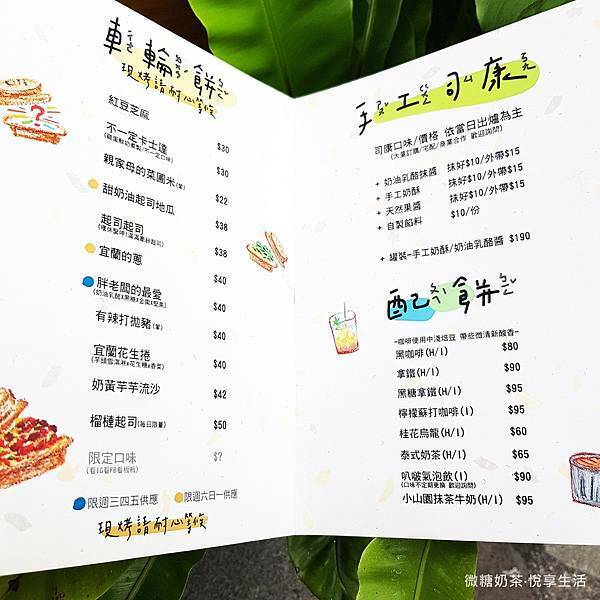 車輪餅
現烤請耐心等候
紅豆芝麻 $30
不一定卡士達 $30
親家母的菜圃米(葷) $22
甜奶油起司地瓜 $38
起司起司 $38
宜蘭的蔥 $40
胖老闆的最愛 $40
有辣打拋豬(葷) $40
宜蘭花生捲 $40
(芋頭雪淇淋x花生糖x香菜)
奶黃芋芋流沙 $42
榴槤起司(每日限量) $50
限定口味 $?
(看IG看FB看板板)
限週三四五供應 限週六日一供應
現烤請耐心等候
手工司康
司康口味/價格 依當日出爐為主
(大量訂購/宅配/商業合作 歡迎詢問)
+ 奶油乳酪抹醬 抹好$10/外帶$15
+ 手工奶酥 抹好$10/外帶$15
+ 天然果醬 抹好$10/外帶$15
+ 自製餡料 $10/份
+ 罐裝-手工奶酥/奶油乳酪醬 $190
配餅
-咖啡使用中淺焙豆 帶些微清新酸香-
黑咖啡(H/I) $80
拿鐵(H/I) $90
黑糖拿鐵(H/I) $95
檸檬蘇打咖啡(I) $95
桂花烏龍(H/I) $60
泰式奶茶(H/I) $65
叭啵氣泡飲(I) $90
(口味不定期更換 歡迎詢問)
小山園抹茶牛奶(H/I) $95
微糖奶茶·悅享生活